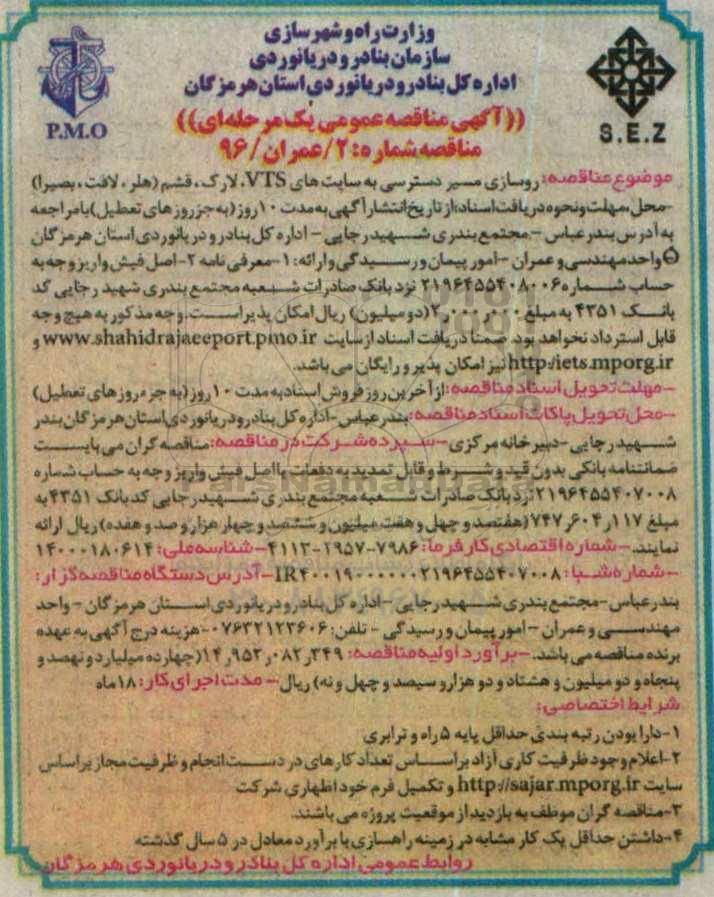 وزارت راه و شهرسازی
سازمان بنادر و دریانوردی
اداره کل بنادر و دریانوردی استان هرمزگان
P.M.O
S.E.Z
((آگهی مناقصه عمومی یک مرحله‌ای))
مناقصه شماره: ۲/عمران/۹۶
موضوع مناقصه: روسازی مسیر دسترسی به سایت های VTS، لارک، قشم (هلر، لافت، بصیرا)
-محل، مهلت و نحوه دریافت اسناد: از تاریخ انتشار آگهی به مدت ۱۰ روز (به جز روز های تعطیل) با مراجعه
به آدرس بندرعباس – مجتمع بندری شهید رجایی – اداره کل بنادر و دریانوردی استان هرمزگان
واحد مهندسی و عمران – امور پیمان و رسیدگی و ارائه: ۱- معرفی نامه ۲- اصل فیش واریز وجه به
حساب شماره ۲۱۹۶۴۵۵۴۰۸۰۰۶ نزد بانک صادرات شعبه مجتمع بندری شهید رجایی کد
بانک ۴۳۵۱ به مبلغ ۲,۰۰۰,۰۰۰ (دو میلیون) ریال امکان پذیر است. وجه مذکور به هیچ وجه
قابل استرداد نخواهد بود. ضمنا دریافت اسناد از سایت www.shahidrajaeeport.pmo.ir و
http:/iets.mporg.ir نیز امکان پذیر و رایگان می باشد.
-مهلت تحویل اسناد مناقصه: از آخرین روز فروش اسناد به مدت ۱۰ روز (به جزء روز های تعطیل)
-محل تحویل پاکات اسناد مناقصه: بندرعباس – اداره کل بنادر و دریانوردی استان هرمزگان بندر
شهید رجایی – دبیرخانه مرکزی – سپرده شرکت در مناقصه: مناقصه گران می بایست
ضمانتنامه بانکی بدون قید و شرط و قابل تمدید به دفعات یا اصل فیش واریز وجه به حساب شماره
۲۱۹۶۴۵۵۴۰۷۰۰۸ نزد بانک صادرات شعبه مجتمع بندری شهید رجایی کد بانک ۴۳۵۱ به
مبلغ ۷۴۷,۶۰۴,۱۱۷ (هفتصد و چهل و هفت میلیون و ششصد و چهار هزار و صد و هفده) ریال ارائه
نمایند. – شماره اقتصادی کارفرما: ۷۹۸۶-۲۹۵۷-۴۱۱۳ – شناسه ملی: ۱۴۰۰۰۱۸۰۶۱۴
-شماره شبا: IR۴۰۰۱۹۰۰۰۰۰۰۰۲۱۹۶۴۵۵۴۰۷۰۰۸ – آدرس دستگاه مناقصه گزار:
بندرعباس – مجتمع بندری شهید رجایی – اداره کل بنادر و دریانوردی استان هرمزگان – واحد
مهندسی و عمران – امور پیمان و رسیدگی – تلفن: ۰۷۶۳۲۱۲۳۶۰۶ - هزینه درج آگهی به عهده
برنده مناقصه می باشد. – برآورد اولیه مناقصه: ۱۴,۹۵۲,۰۸۲,۳۴۹ (چهارده میلیارد و نهصد و
پنجاه و دو میلیون و هشتاد و دو هزار و سیصد و چهل و نه) ریال – مدت اجرای کار: ۱۸ ماه
شرایط اختصاصی:
۱- دارا بودن رتبه بندی حداقل پایه ۵ راه و ترابری
۲- اعلام وجود ظرفیت کاری آزاد براساس تعداد کارهای در دست انجام و ظرفیت مجاز براساس
سایت http://sajar.mporg.ir و تکمیل فرم خود اظهاری شرکت
۳- مناقصه گران موظف به بازدید از موقعیت پروژه می باشند.
۴- داشتن حداقل یک کار مشابه در زمینه راهسازی با برآورد معادل در ۵ سال گذشته
روابط عمومی اداره کل بنادر و دریانوردی هرمزگان